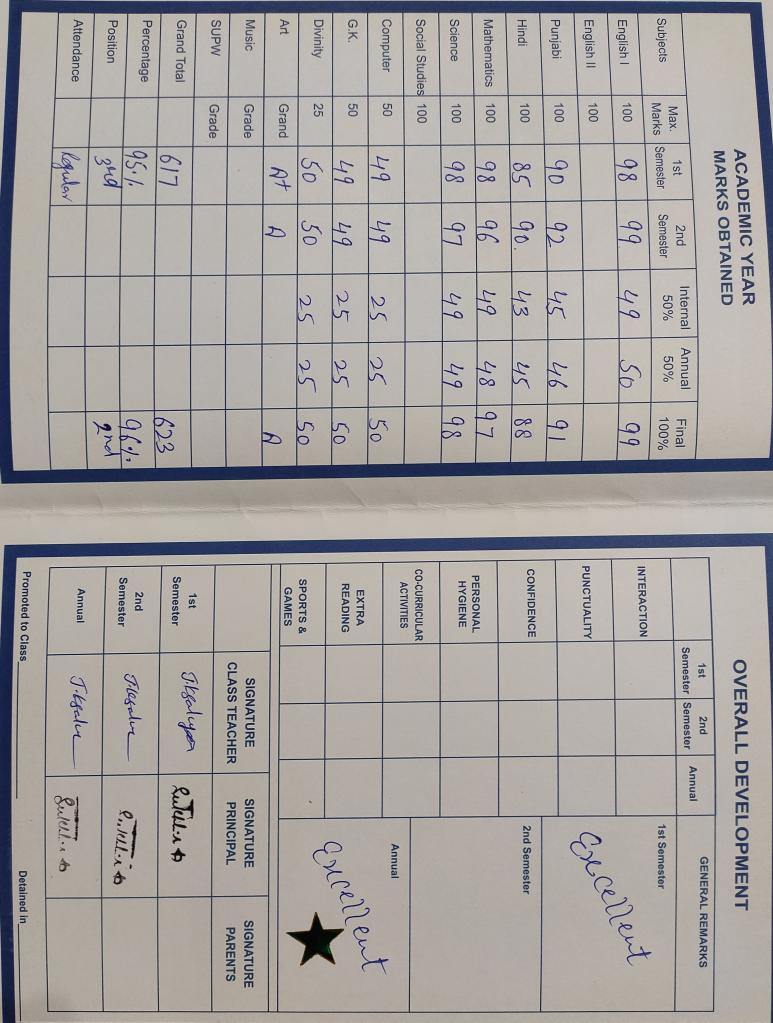 ACADEMIC YEAR
MARKS OBTAINED
Subjects Max. Marks 1st Semester 2nd Semester Internal 50% Annual 50% Final 100%
English I 100 98 99 49 50 99
English II 100
Punjabi 100 90 92 45 46 91
Hindi 100 85 90. 43 45 88
Mathematics 100 98 96 49 48 97
Science 100 98 97 49 49 98
Social Studies 100
Computer 50 49 49 25 25 50
G.K. 50 49 49 25 25 50
Divinity 25 50 50 25 25 50
Art Grand A+ A A
Music Grade
SUPW Grade
Grand Total 617 623
Percentage 95% 96%
Position 3rd 2nd
Attendance Regular
OVERALL DEVELOPMENT
1st Semester 2nd Semester Annual GENERAL REMARKS
INTERACTION
PUNCTUALITY
CONFIDENCE
PERSONAL HYGIENE
CO-CURRICULAR ACTIVITIES
EXTRA READING
SPORTS & GAMES
1st Semester
Excellent
2nd Semester
Annual
Excellent
SIGNATURE CLASS TEACHER SIGNATURE PRINCIPAL SIGNATURE PARENTS
1st Semester
2nd Semester
Annual
Promoted to Class Detained in